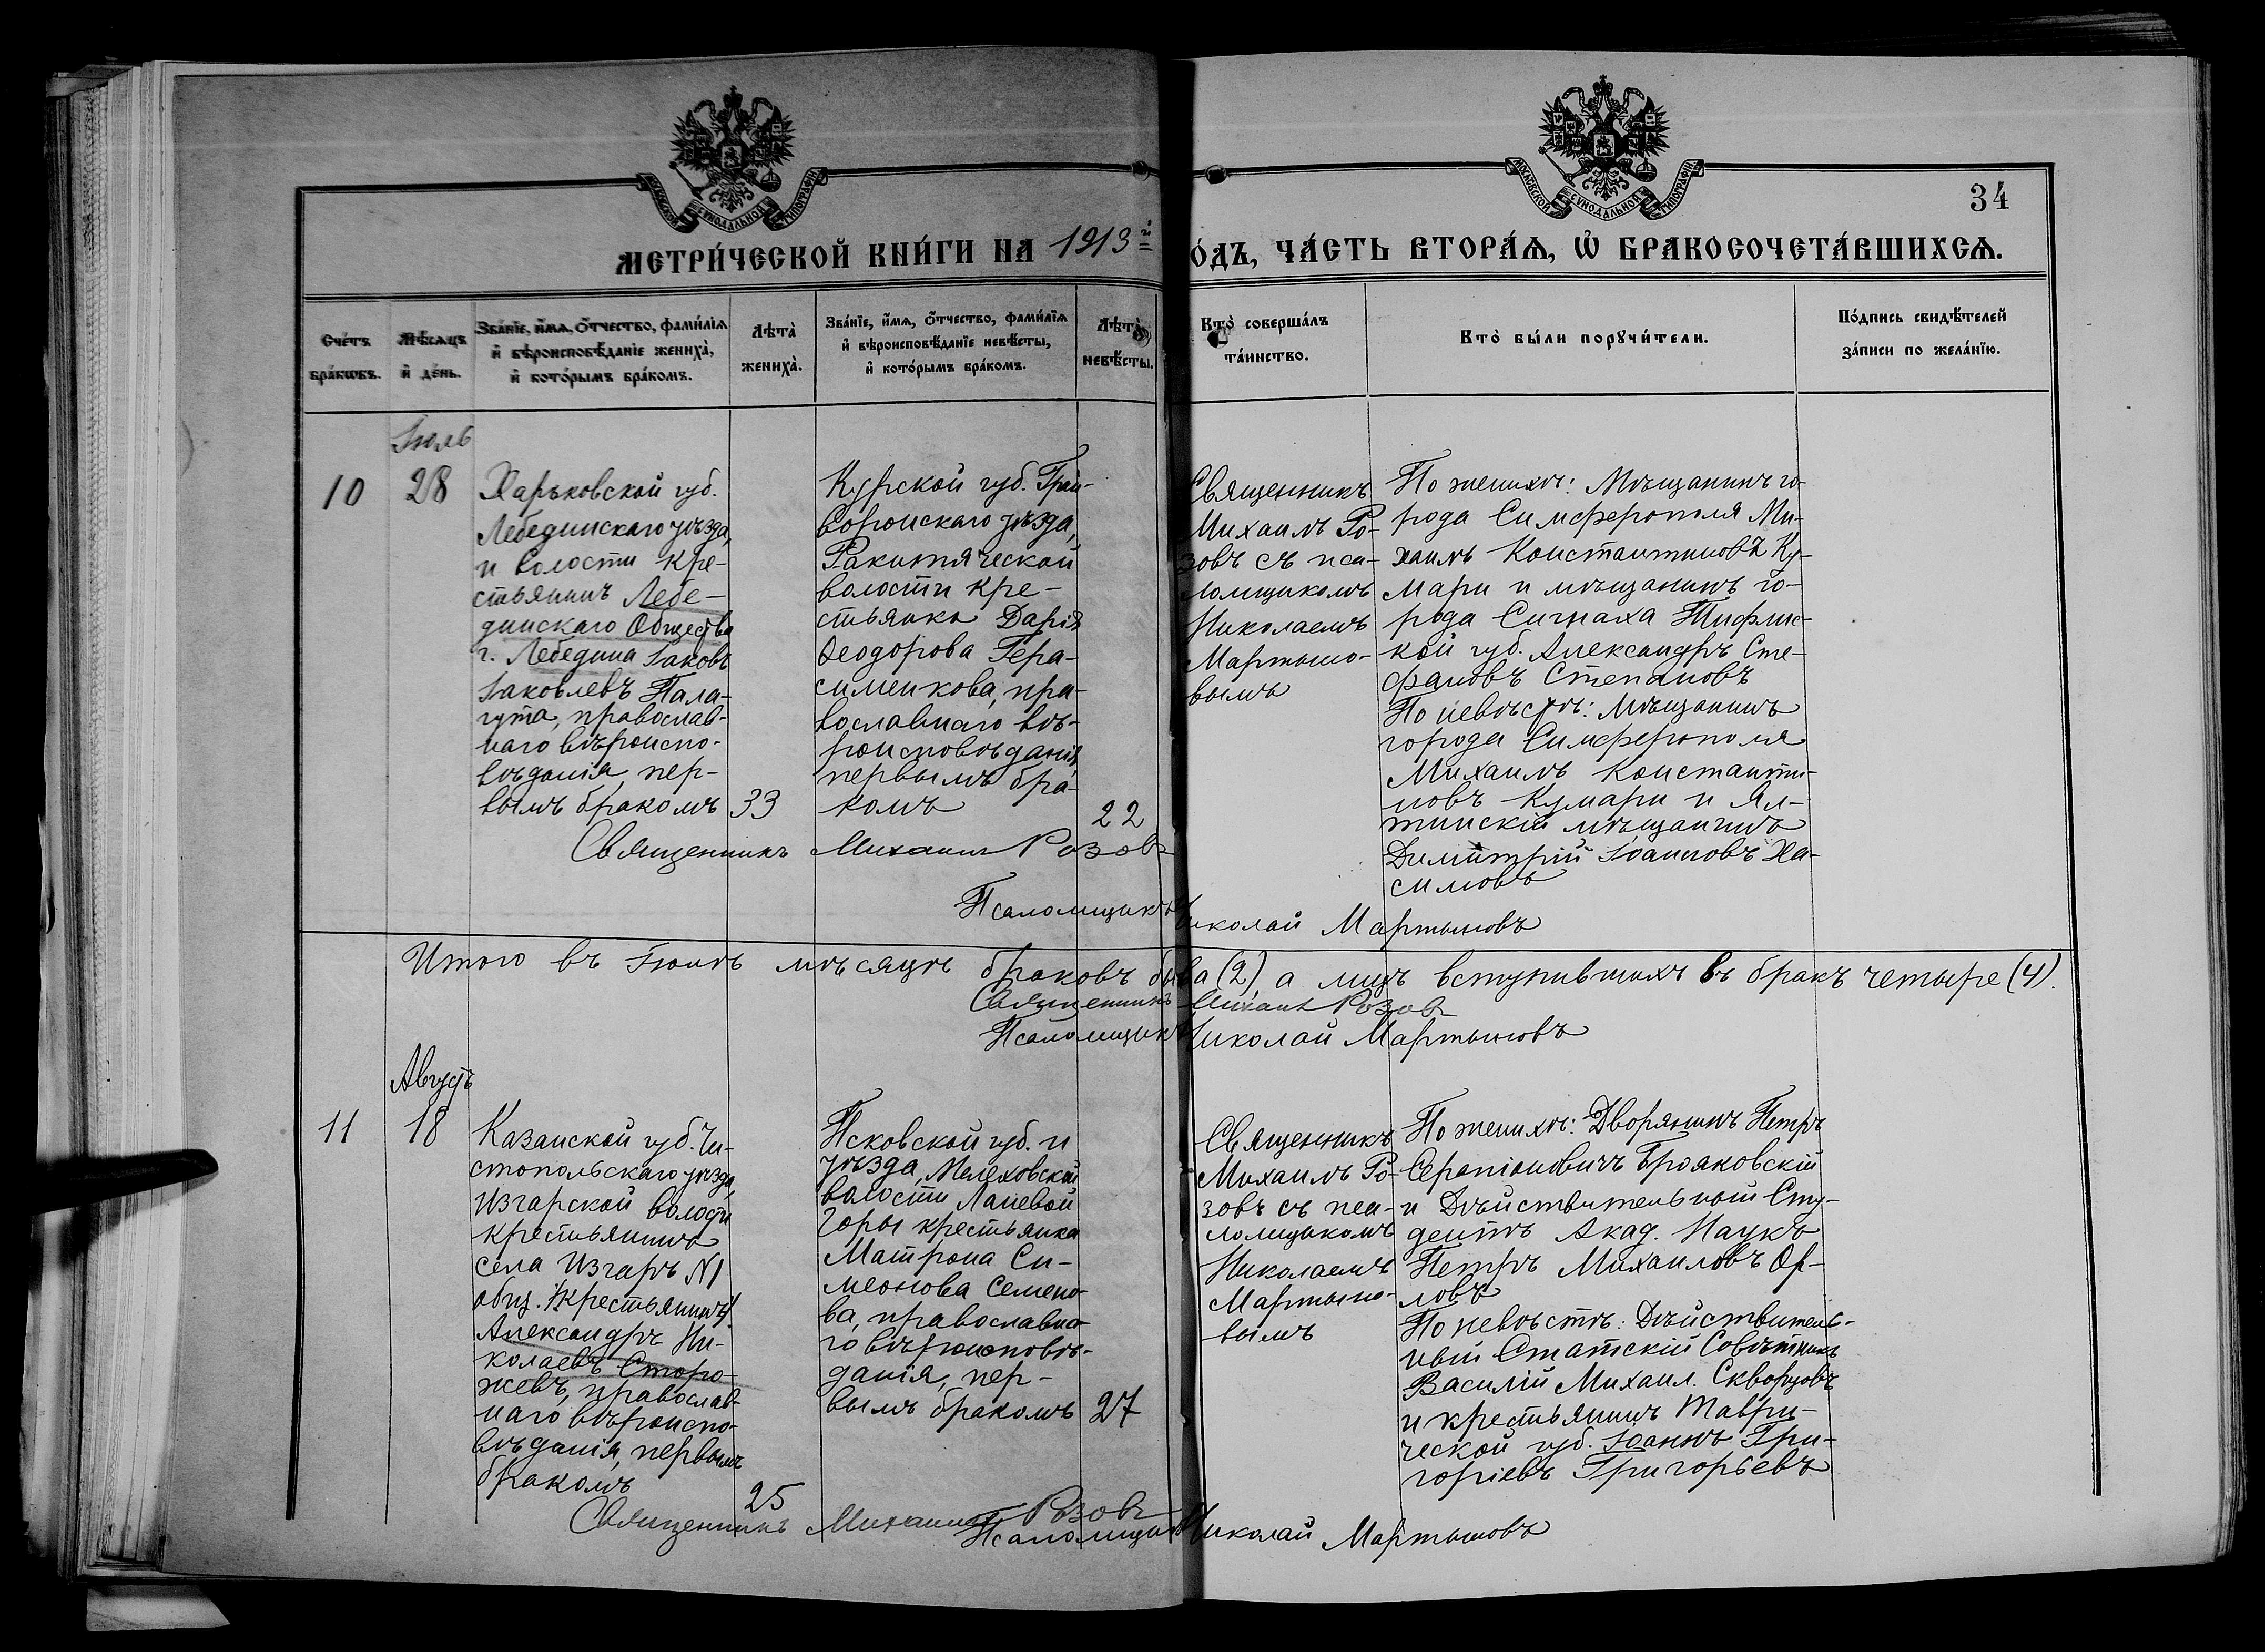 МОСКОВСКОЙ СУНОДАЛЬНОЙ ТИПОГРАФІИ
МОСКОВСКОЙ СУНОДАЛЬНОЙ ТИПОГРАФІИ
34
МЕТРИ́ЧЕСКОЙ КНИ́ГИ НА 1913й
О́ДЪ, ЧА́СТЬ ВТОРА́Ѧ, Ѽ БРАКОСОЧЕТА́ВШИХСѦ.
Сче́тъ бра́кѡвъ.
Мѣ́сѧцъ и҆ де́нь.
Зва́нїе, и҆́мѧ, ѻ҆́тчество, фами́лїѧ
и҆ вѣроисповѣ́данїе жениха̀,
и҆ кото́рымъ бра́комъ.
Лѣта̀ жениха̀.
Зва́нїе, и҆́мѧ, ѻ҆́тчество, фами́лїѧ
и҆ вѣроисповѣ́данїе невѣ́сты,
и҆ кото́рымъ бра́комъ.
Лѣта̀ невѣ́сты.
Кто̀ соверша́лъ
та́инство.
Кто̀ бы́ли порꙋчи́тели.
По́дпись свидѣ́телей
за́писи по жела́нїю.
Іюль
10
28
Харьковской губ.
Лебединскаго уѣзда,
и волости кре-
стьянинъ Лебе-
динскаго Общества
г. Лебедина Іаковъ
Іаковлевъ Пала-
гута, православ-
наго вѣроиспо-
вѣданія, пер-
вымъ бракомъ
33
Курской губ. Грай-
воронскаго уѣзда,
Ракитяческой
волости кре-
стьянка Дарія
Ѳеодорова Гера-
сименкова, пра-
вославнаго вѣ-
роисповѣданія,
первымъ бра-
комъ
22
Священникъ
Михаилъ Ро-
зовъ съ пса-
ломщикомъ
Николаемъ
Мартыно-
вымъ
По женихѣ: Мѣщанинъ го-
рода Симферополя Ми-
хаилъ Константиновъ Ку-
мари и мѣщанинъ го-
рода Сигнаха Тифлис-
кой губ. Александръ Сте-
фановъ Степановъ
По невѣстѣ: Мѣщанинъ
города Симферополя
Михаилъ Константи-
новъ Кумари и Ял-
тинскій мѣщанинъ
Димитрій Іоанновъ Ха-
симовъ
Священникъ Михаилъ Розовъ
Псаломщикъ Николай Мартыновъ
Итого въ Іюлѣ мѣсяцѣ браковъ два (2), а лицъ вступившихъ въ бракъ четыре (4).
Священникъ Михаилъ Розовъ
Псаломщикъ Николай Мартыновъ
Августъ
11
18
Казанской губ. Чи-
стопольскаго уѣзда,
Изгарской волости
крестьянинъ
села Изгаръ №1
общ. (крестьянинъ)
Александръ Ни-
колаевъ Сторо-
жевъ, православ-
наго вѣроиспо-
вѣданія, первымъ
бракомъ
25
Псковской губ. и
уѣзда, Мелеховской
волости Ланевой
Горы крестьянка
Матрона Си-
меонова Семено-
ва, православна-
го вѣроисповѣ-
данія, пер-
вымъ бракомъ
27
Священникъ
Михаилъ Ро-
зовъ съ пса-
ломщикомъ
Николаемъ
Мартыно-
вымъ
По женихѣ: Дворянинъ Петръ
Серапіоновичъ Брояковскій
и Дѣйствительный Сту-
дентъ Акад. Наукъ
Петръ Михаиловъ Ор-
ловъ
По невѣстѣ: Дѣйствитель-
ный Статскій Совѣтникъ
Василій Михаил. Скворцовъ
и крестьянинъ Таври-
ческой губ. Іоаннъ Гри-
горіевъ Григорьевъ
Священникъ Михаилъ Розовъ
Псаломщикъ Николай Мартыновъ